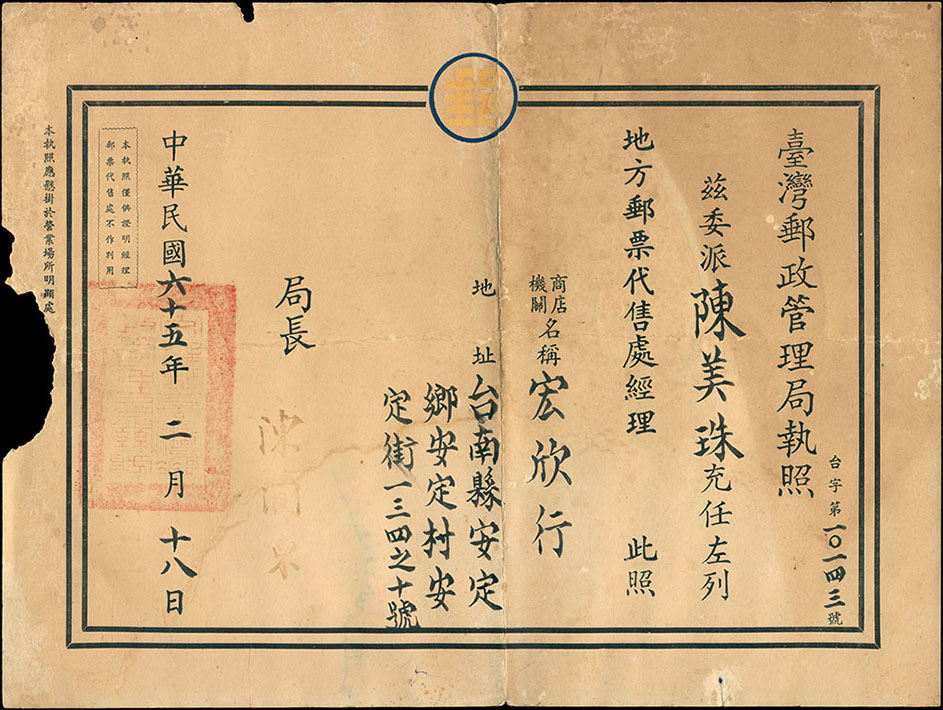 郵
臺灣郵政管理局執照
台字第一〇一四三號
茲委派陳美珠充任左列
地方郵票代售處經理 此照
商店機關名稱宏欣行
地址台南縣安定
鄉安定村安
定街一三四之十號
局長
中華民國六十五年二月十八日
本執照僅供證明經理
郵票代售處不作別用
本執照應懸掛於營業場所明顯處